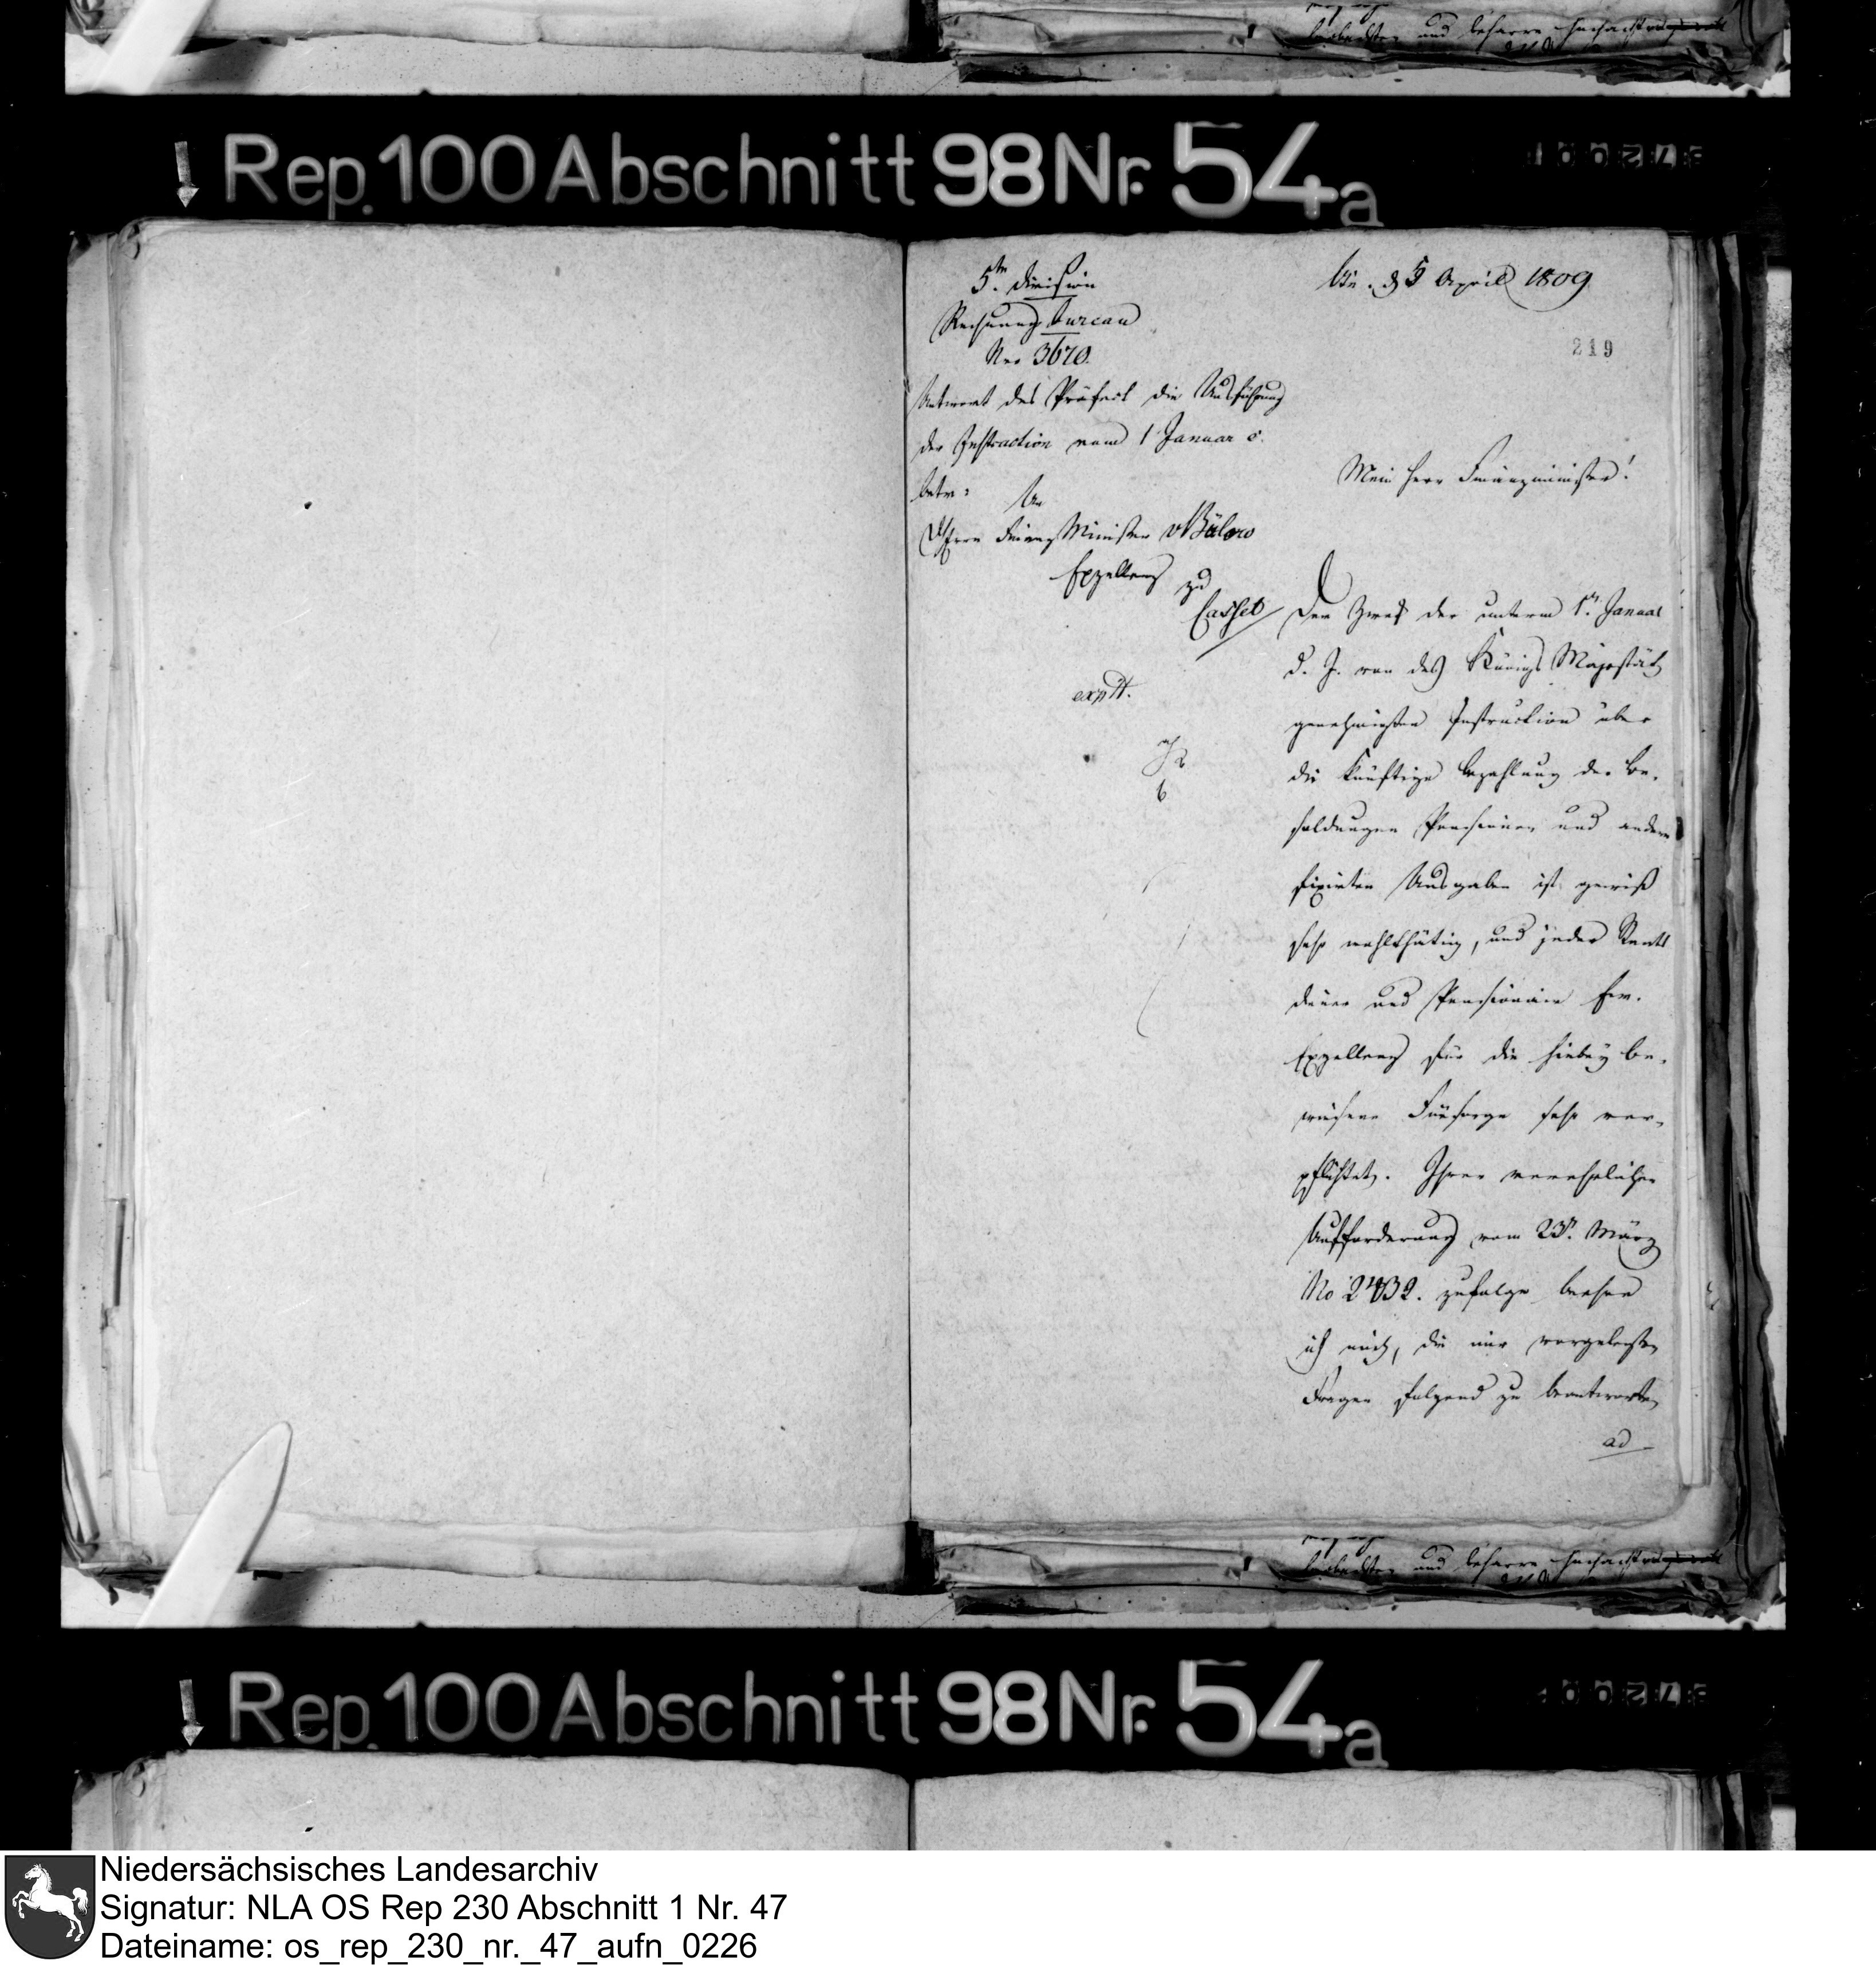 Rep. 100 Abschnitt 98 Nr. 54a
5te Division
Rechnungs bureau
Nro 3670.
Antwort des Präfect die Ausführung
der Instruction vom 1 Januar c.
betr:
An
Herrn Finanz Minister v Bülow
Exzellenz zu
Cassel
expdt.
d 5 April 1809
219
Mein Herr Finanzminister!
Der Zweck der unterm 1n. Januar
d. J. von des Königs Majestät
genehmigten Instruction über
die künftige Bezahlung der Be-
soldungen Pensionen und andern
fixirten Ausgaben ist gewiß
sehr wohlthätig, und jeder Staats
diener und Pensionair Ew.
Exzellenz für die hiebey be-
wiesene Fürsorge sehr ver-
pflichtet. Ihrer verehrlichen
Aufforderung vom 23n. März
No 2432. zufolge beehre
ich mich, die mir vorgelegten
Fragen folgend zu beantworten
ad
und beharre hochachtungsvoll
Rep. 100 Abschnitt 98 Nr. 54a
Niedersächsisches Landesarchiv
Signatur: NLA OS Rep 230 Abschnitt 1 Nr. 47
Dateiname: os_rep_230_nr._47_aufn_0226